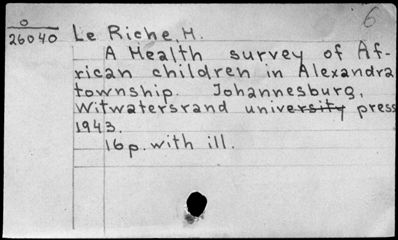 6
0
26040
Le Riche, H.
A Health survey of Af-
rican children in Alexandra
township. Johannesburg,
Witwatersrand university press
1943.
16p. with ill.